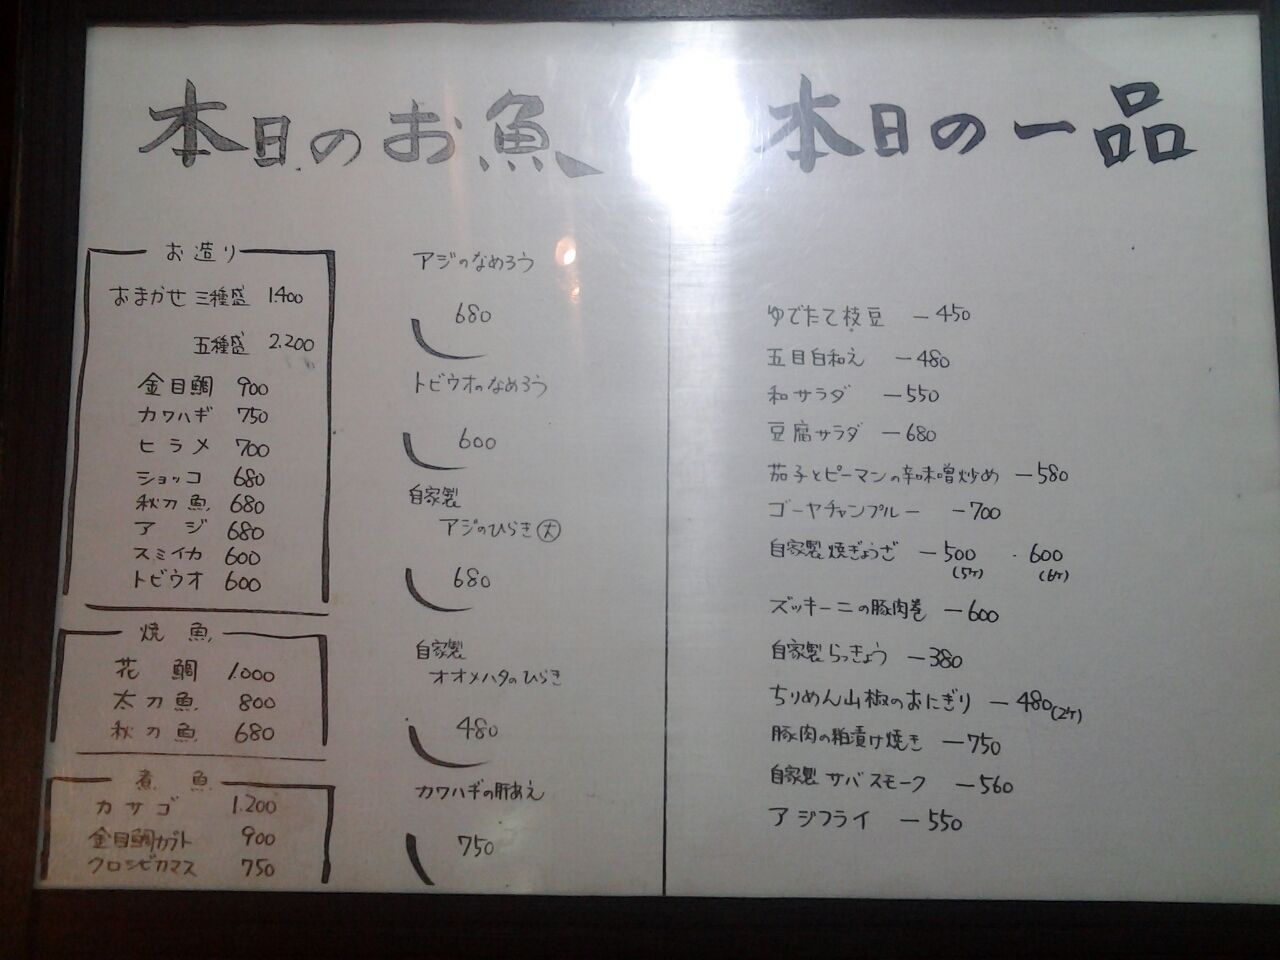 本日のお魚
お造り
おまかせ 三種盛 1.400
五種盛 2.200
金目鯛 900
カワハギ 750
ヒラメ 700
ショッコ 680
秋刀魚 680
アジ 680
スミイカ 600
トビウオ 600
焼魚
花鯛 1.000
太刀魚 800
秋刀魚 680
煮魚
カサゴ 1.200
金目鯛カブト 900
クロシビカマス 750
アジのなめろう
680
トビウオのなめろう
600
自家製
アジのひらき 大
680
自家製
オオメハタのひらき
480
カワハギの肝あえ
750
本日の一品
ゆでたて枝豆 ー450
五目白和え ー480
和サラダ ー550
豆腐サラダ ー680
茄子とピーマンの辛味噌炒め ー580
ゴーヤチャンプルー ー700
自家製焼ぎょうざ ー500 ・600
(5ケ) (6ケ)
ズッキーニの豚肉巻 ー600
自家製らっきょう ー380
ちりめん山椒のおにぎり ー480(2ケ)
豚肉の粕漬け焼き ー750
自家製サバスモーク ー560
アジフライ ー550